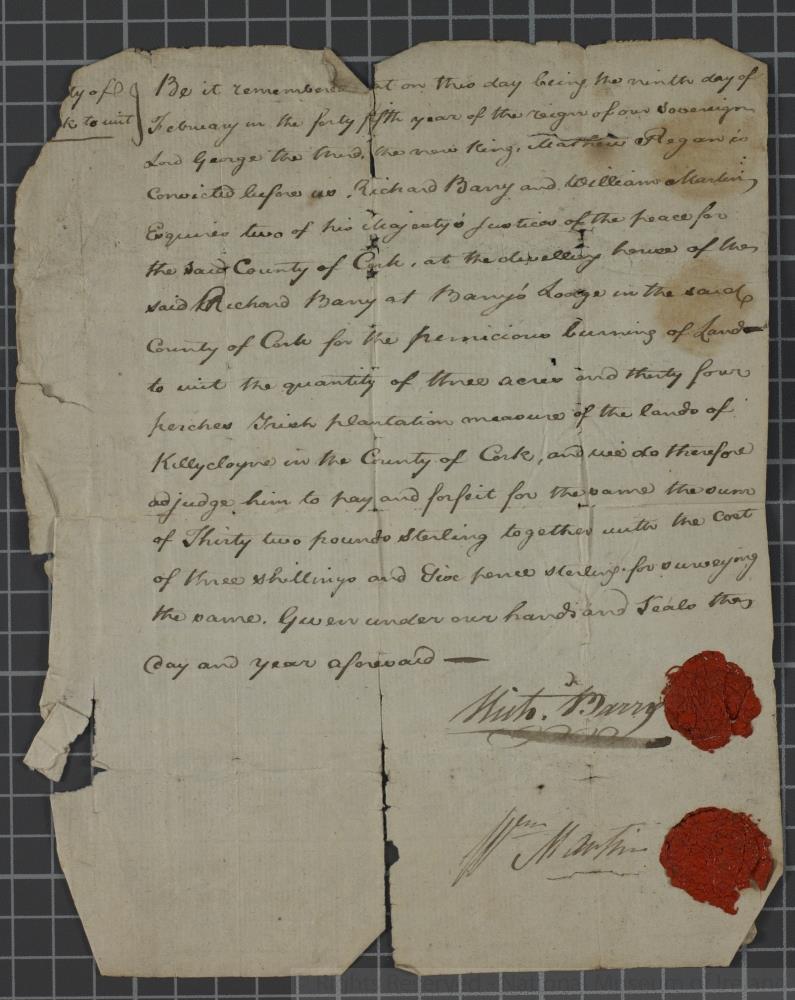 ty of Be it remembered at on this day being the ninth day of
k to wit February in the forty fifth year of the reign of our Sovereign
Lord George the third, the now King, Mathew Regan is
Convicted before us, Richard Barry and William Martin
Esquires two of his Majesty's Justices of the peace for
the said County of Cork, at the dwelling house of the
said Richard Barry at Barry's Lodge in the said
County of Cork for the pernicious burning of Land
to wit the quantity of three acres and thirty four
perches Irish plantation measure of the lands of
Killycloyne in the County of Cork, and we do therefore
adjudge him to pay and forfeit for the same the sum
of Thirty two pounds Sterling together with the Cost
of three shillings and Six pence sterling for surveying
the same. Given under our hands and Seals the
Day and year aforesaid —
Richd. Barry
Wm Martin
Rights Reserved - National Museums of